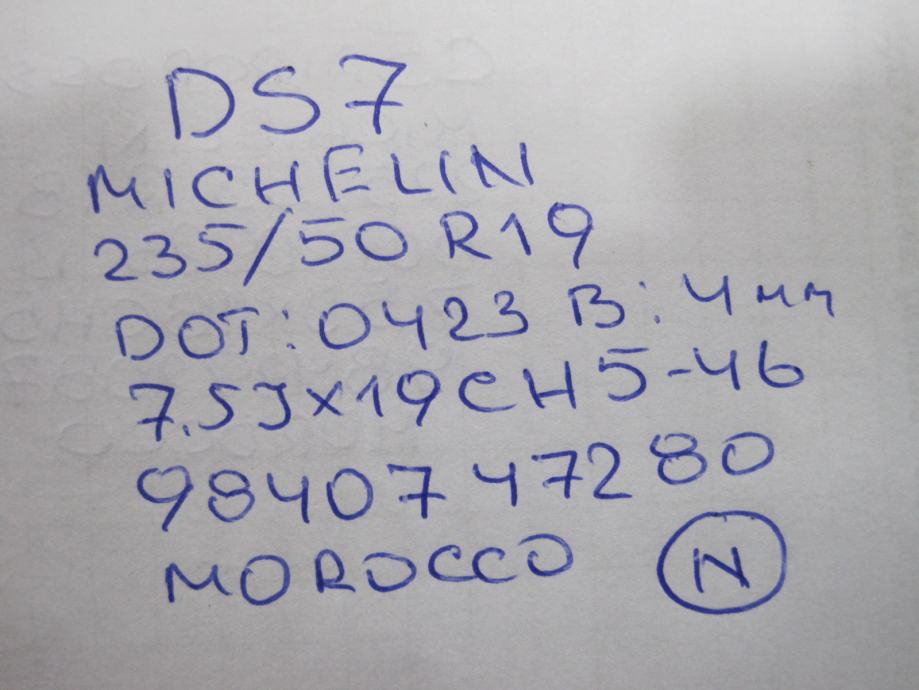 DS7
MICHELIN
235/50 R19
DOT: 0423 B: 4mm
7.5J×19CH5-46
9840747280
MOROCCO N